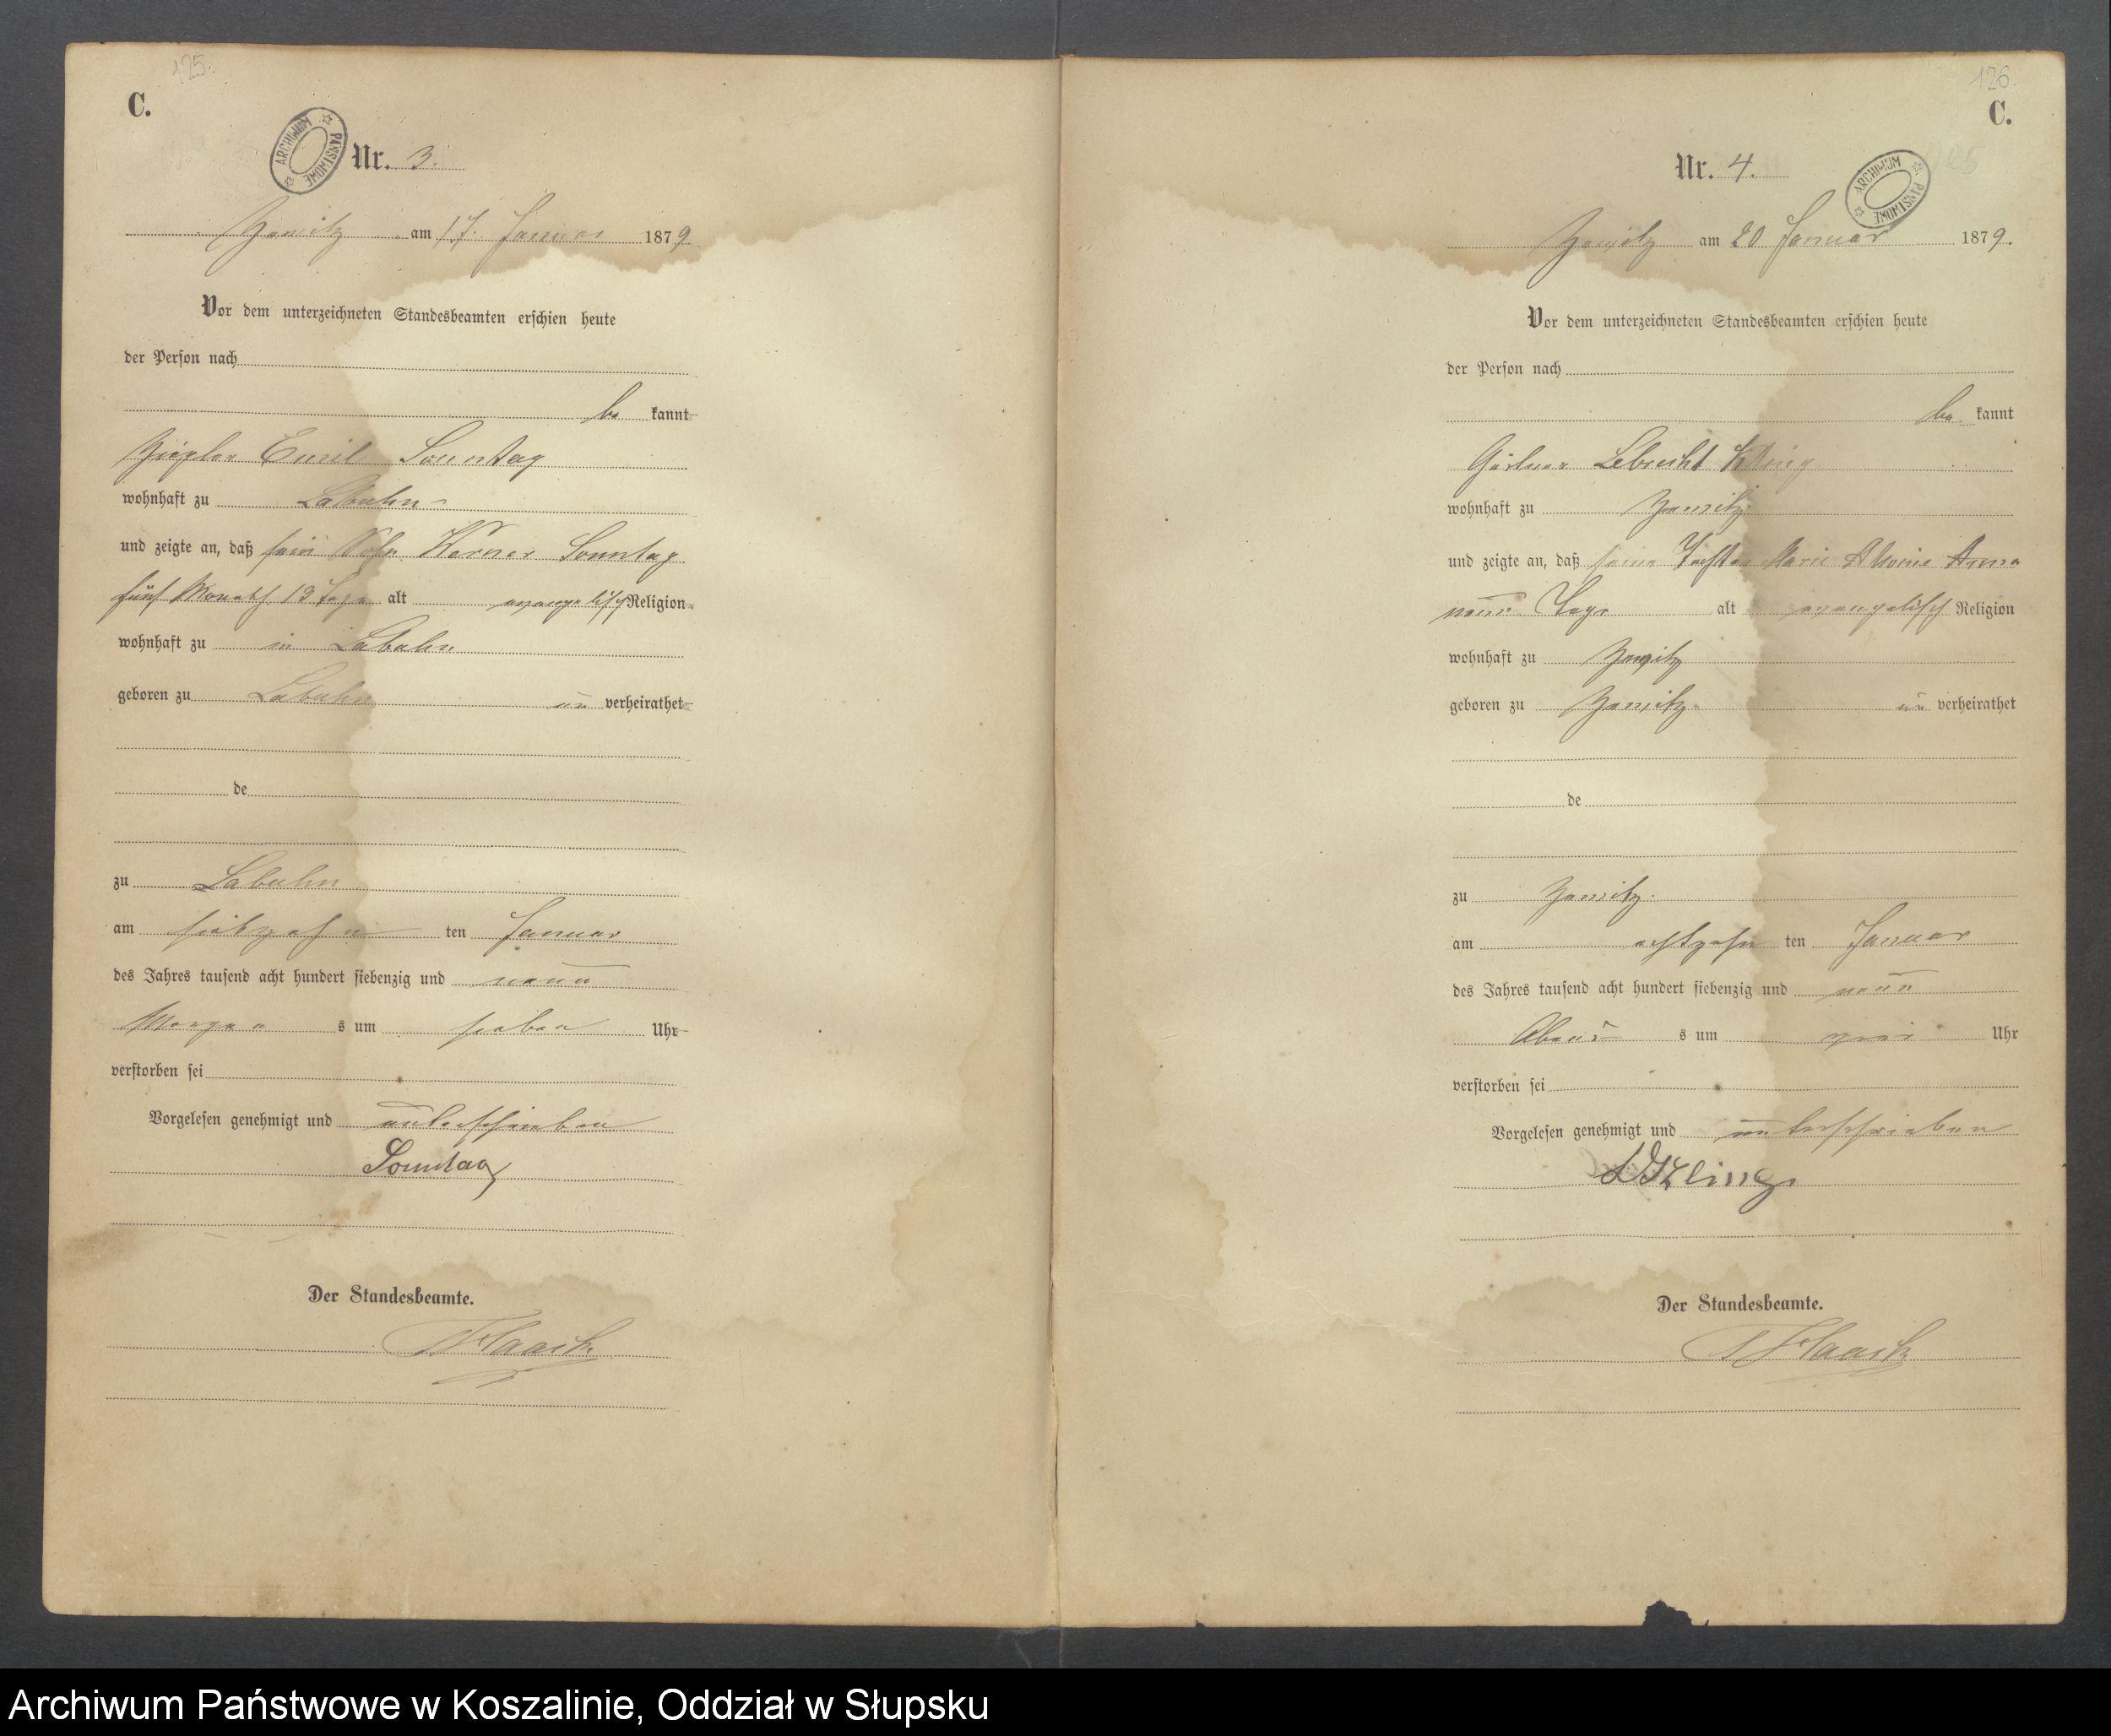 125.
C.
ARCHIWUM PAŃSTWOWE
Nr. 3.
Zewitz am 17. Januar 1879
Vor dem unterzeichneten Standesbeamten erschien heute
der Person nach
be kannt
Ziegler Emil Sonntag
wohnhaft zu Labuhn
und zeigte an, daß sein Sohn Werner Sonntag
fünf Monath 13 Tage alt evangelisch Religion
wohnhaft zu in Labuhn
geboren zu Labuhn un verheirathet
de
zu Labuhn
am siebzehn ten Januar
des Jahres tausend acht hundert siebenzig und neun
Morgen s um sieben Uhr
verstorben sei
Vorgelesen genehmigt und unterschrieben
Sonntag
Der Standesbeamte.
126.
C.
Nr. 4.
ARCHIWUM PAŃSTWOWE
Zewitz am 20 Januar 1879.
Vor dem unterzeichneten Standesbeamten erschien heute
der Person nach
be kannt
Gärtner Lebrecht Kling
wohnhaft zu Zewitz
und zeigte an, daß seine Tochter Marie Alwine Anna
neun Tage alt evangelisch Religion
wohnhaft zu Zewitz
geboren zu Zewitz un verheirathet
de
zu Zewitz.
am achtzehn ten Januar
des Jahres tausend acht hundert siebenzig und neun
Abend s um Uhr
verstorben sei
Vorgelesen genehmigt und unterschrieben
Kling
Der Standesbeamte.
Archiwum Państwowe w Koszalinie, Oddział w Słupsku